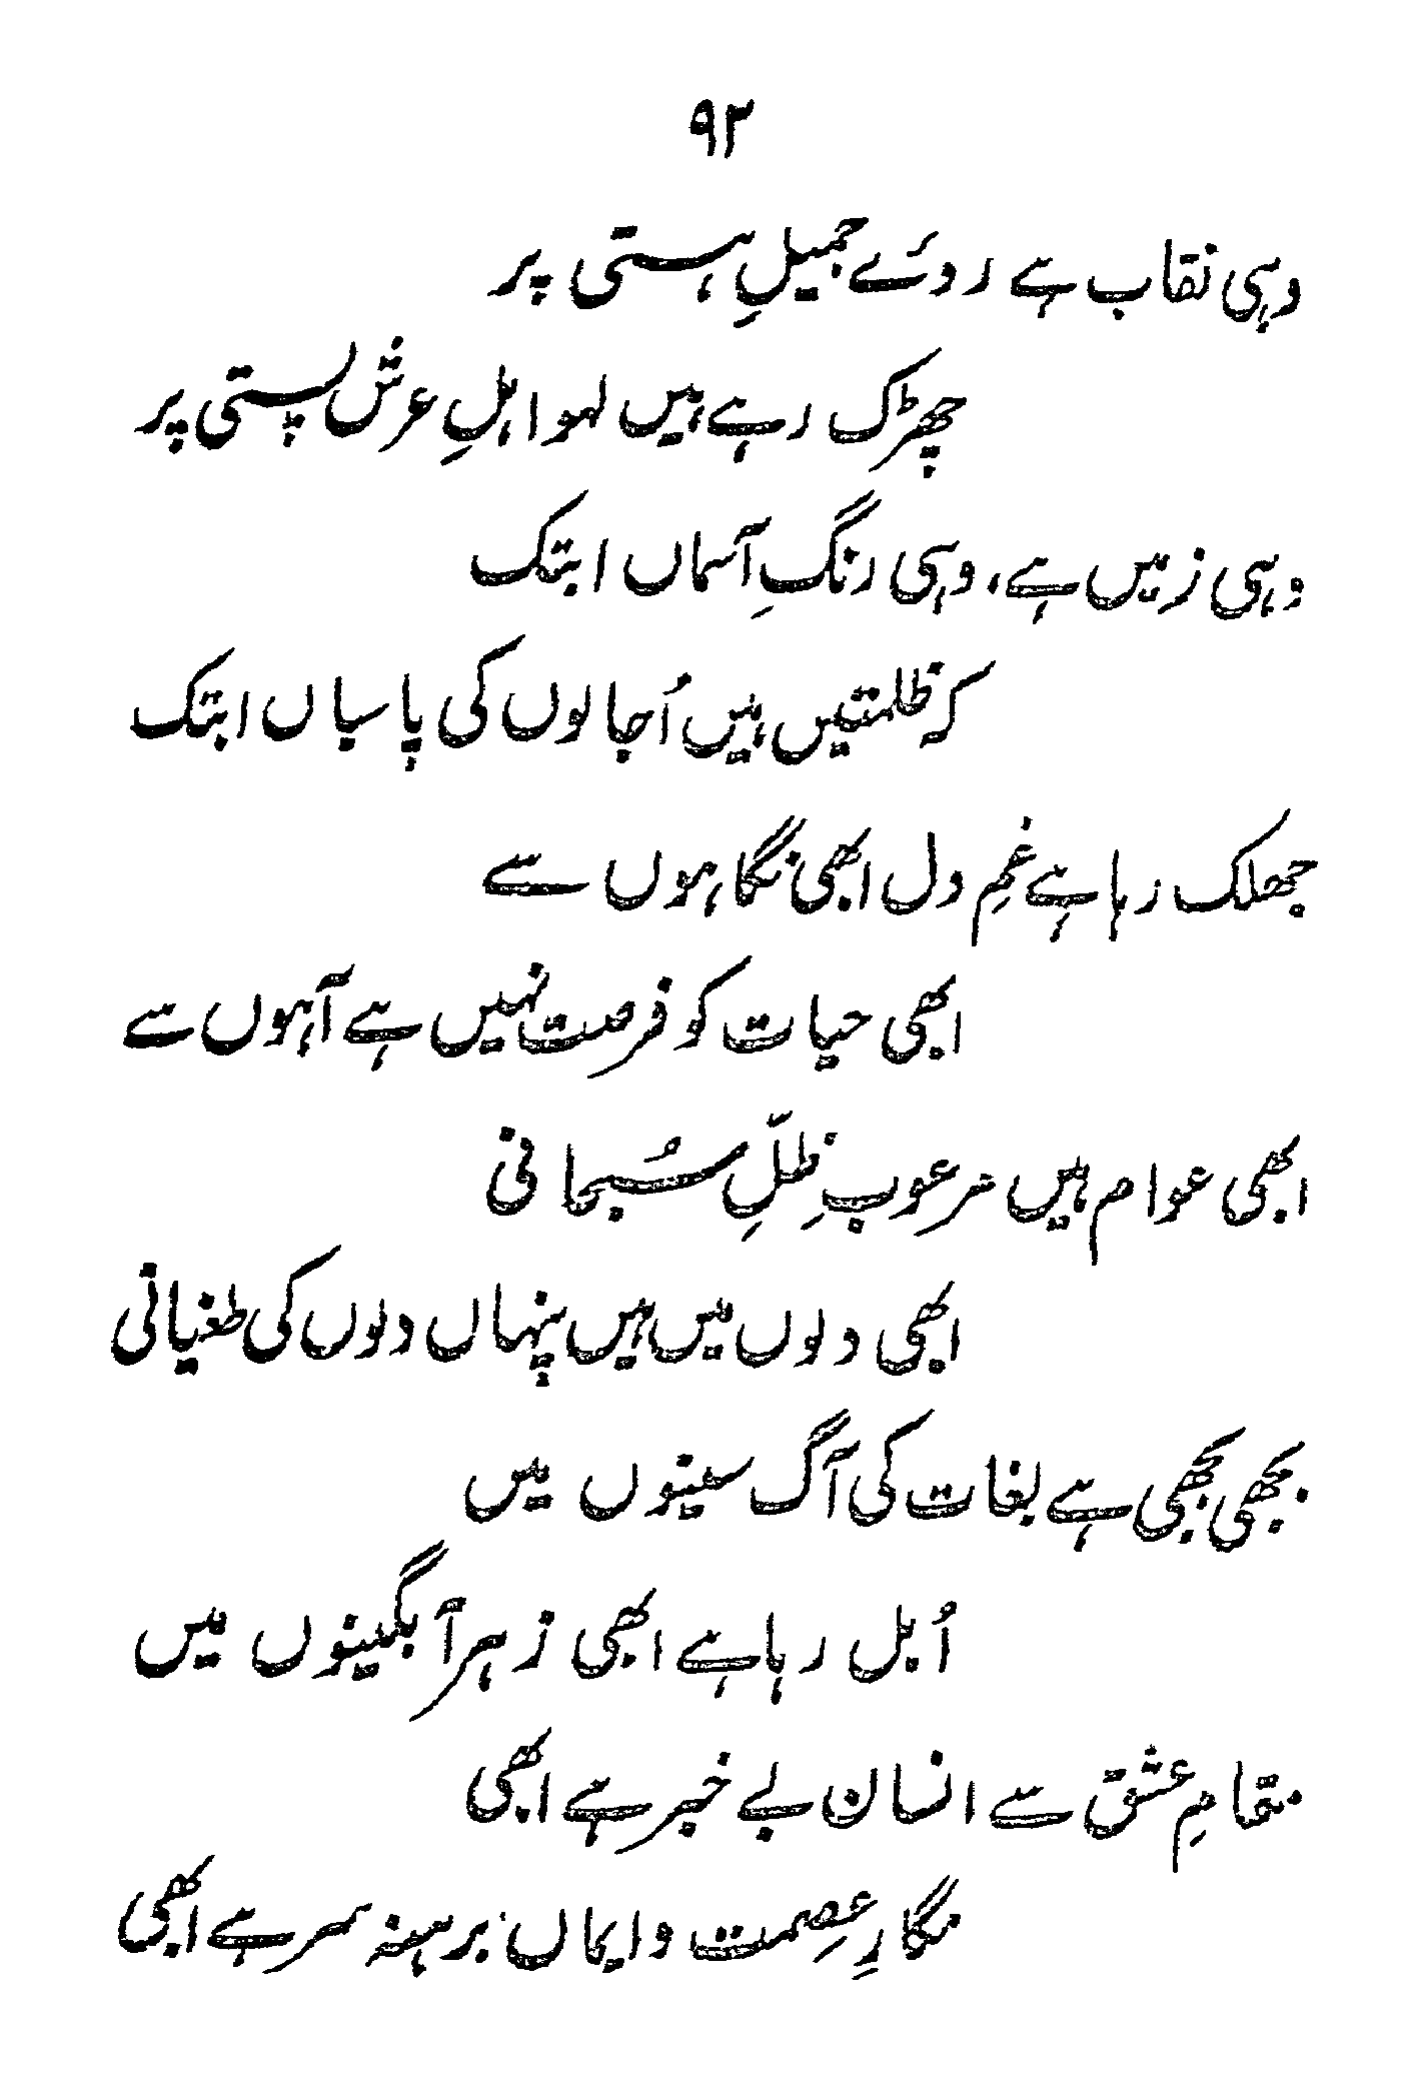 ۹۲
وہی نقاب ہے روئے جمیلِ ہستی پر
چھڑک رہے ہیں لہو اہلِ عرش پستی پر
وہی زمیں ہے، وہی رنگِ آسماں ابتک
کہ ظلمتیں ہیں اُجالوں کی پاسباں ابتک
جھلک رہا ہے غمِ دل ابھی نگاہوں سے
ابھی حیات کو فرصت نہیں ہے آہوں سے
ابھی عوام ہیں مرعوبِ ظلِّ سُبحانی
ابھی دلوں میں ہیں پنہاں دلوں کی طغیانی
بجھی بجھی ہے بغات کی آگ سینوں میں
اُبل رہا ہے ابھی زہر آبگینوں میں
مقامِ عشق سے انسان بے خبر ہے ابھی
نگارِ عِصمت و ایماں برہنہ سر ہے ابھی